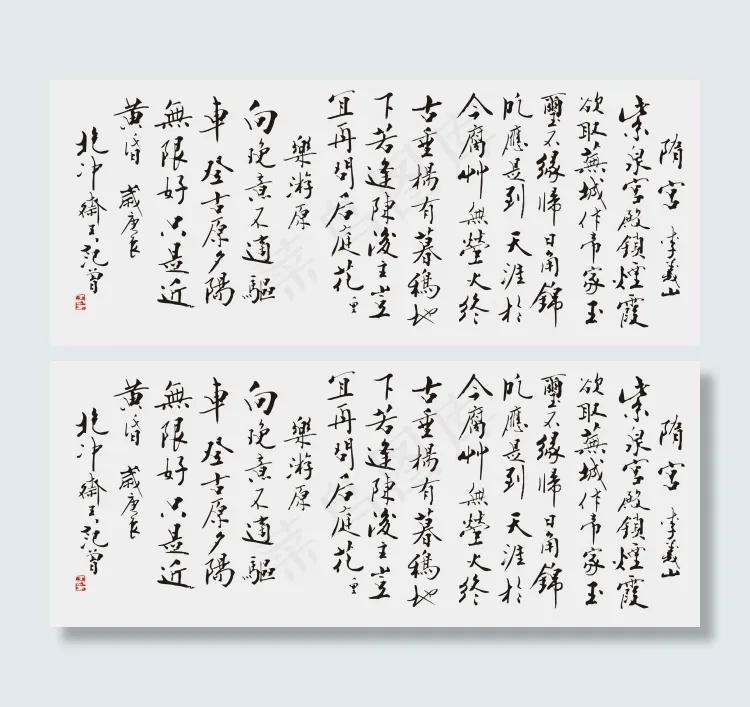 隋宫 李義山
紫泉宫殿鎖煙霞
欲取蕪城作帝家玉
璽不緣歸日角錦
帆應是到天涯於
今腐艸無螢火終
古垂楊有暮鴉地
下若逢陳後主豈
宜再問后庭花
樂游原
向晚意不適驅
車登古原夕陽
無限好只是近
黄昏 歲庚辰
抱冲齋主范曾
隋宫 李義山
紫泉宫殿鎖煙霞
欲取蕪城作帝家玉
璽不緣歸日角錦
帆應是到天涯於
今腐艸無螢火終
古垂楊有暮鴉地
下若逢陳後主豈
宜再問后庭花
樂游原
向晚意不適驅
車登古原夕陽
無限好只是近
黄昏 歲庚辰
抱冲齋主范曾